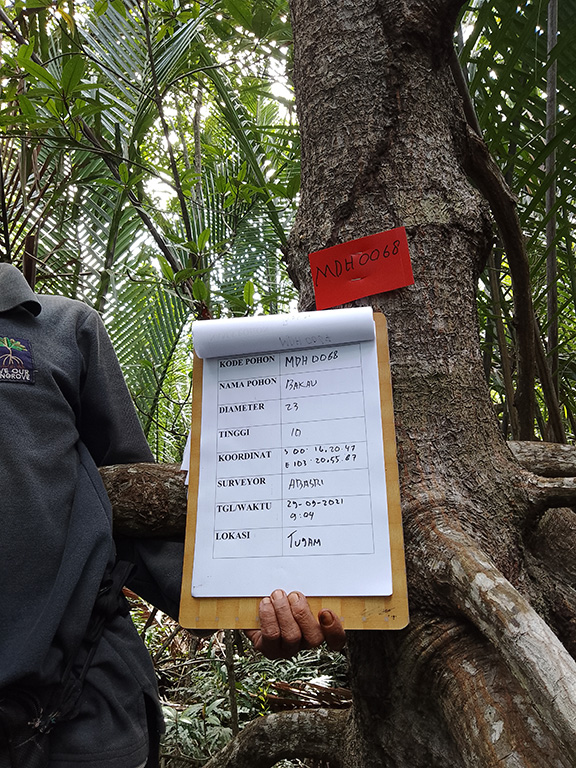 MDH0068
KODE POHON MDH0068
NAMA POHON BAKAU
DIAMETER 23
TINGGI 10
KOORDINAT S 00.16.20.47
E 103.20.55.67
SURVEYOR ABASRI
TGL/WAKTU 29-09-2021
9:04
LOKASI TUGAM
VE OUR
NGROVE